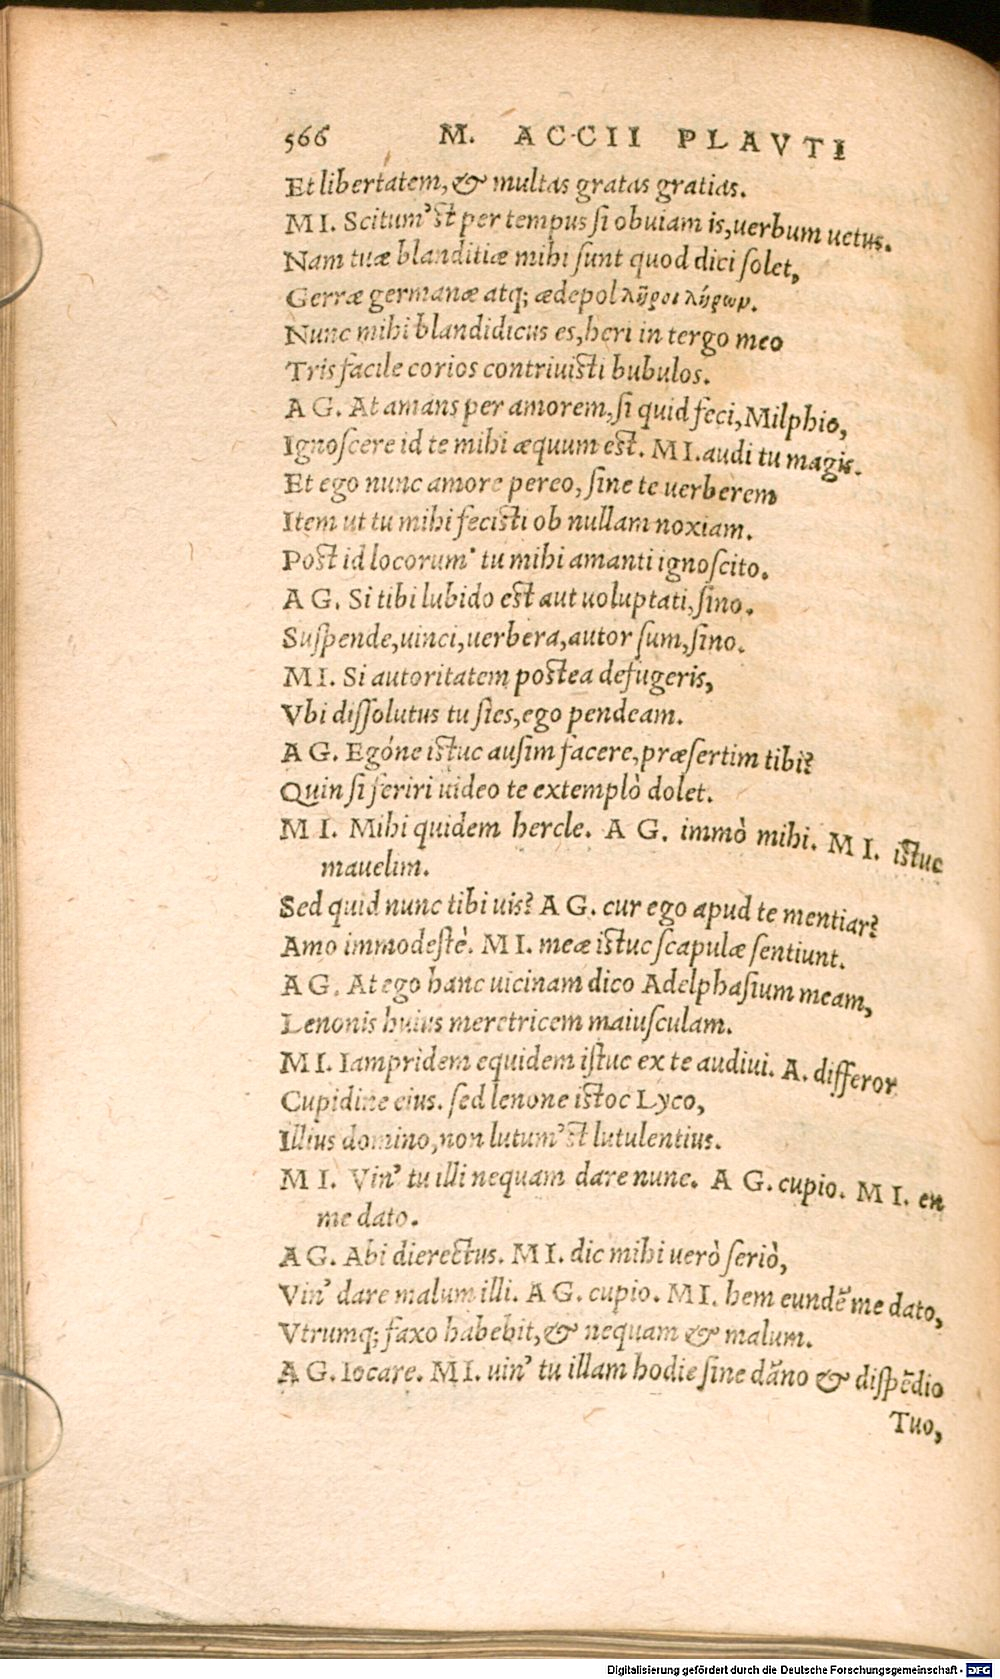 566 M. ACCII PLAVTI
Et libertatem, & multas gratas gratias.
MI. Scitum'st per tempus si obuiam is, uerbum uetus.
Nam tuæ blanditiæ mihi sunt quod dici solet,
Gerræ germanæ atq; ædepol λῆροι λήρων.
Nunc mihi blandidicus es, heri in tergo meo
Tris facile corios contriuisti bubulos.
AG. At amans per amorem, si quid feci, Milphio,
Ignoscere id te mihi æquum est. MI. audi tu magis.
Et ego nunc amore pereo, sine te uerberem
Item ut tu mihi fecisti ob nullam noxiam.
Post id locorum' tu mihi amanti ignoscito.
AG. Si tibi lubido est aut uoluptati, sino.
Suspende, uinci, uerbera, autor sum, sino.
MI. Si autoritatem postea defugeris,
Vbi dissolutus tu sies, ego pendeam.
AG. Egóne istuc ausim facere, præsertim tibi?
Quin si feriri uideo te extemplò dolet.
MI. Mihi quidem hercle. AG. immò mihi. MI. istuc
mauelim.
Sed quid nunc tibi uis? AG. cur ego apud te mentiar?
Amo immodestè. MI. meæ istuc scapulæ sentiunt.
AG. At ego hanc uicinam dico Adelphasium meam,
Lenonis huius meretricem maiusculam.
MI. Iampridem equidem istuc ex te audiui. A. differor
Cupidine eius. sed lenone istoc Lyco,
Illius domino, non lutum'st lutulentius.
MI. Vin' tu illi nequam dare nunc. AG. cupio. MI. en
me dato.
AG. Abi dierectus. MI. dic mihi uerò seriò,
Vin' dare malum illi. AG. cupio. MI. hem eundē me dato,
Vtrumq; faxo habebit, & nequam & malum.
AG. Iocare. MI. uin' tu illam hodie sine dāno & dispēdio
Tuo,
Digitalisierung gefördert durch die Deutsche Forschungsgemeinschaft - DFG